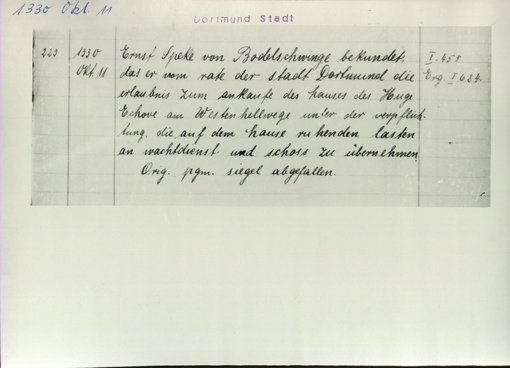 1330 Okt. 11
Dortmund Stadt
223 1330 Ernst Speke von Bodelschwinge bekundet, I. 455
Okt. 11 das er vom rate der stadt Dortmund die Erg. I 624.
erlaubnis zum ankaufe des hauses des Hugo
Echove am Westenhellwege unter der verpflich-
tung, die auf dem hause ruhenden lasten
an wachtdienst und schoss zu übernehmen
Orig. pgm. siegel abgefallen.